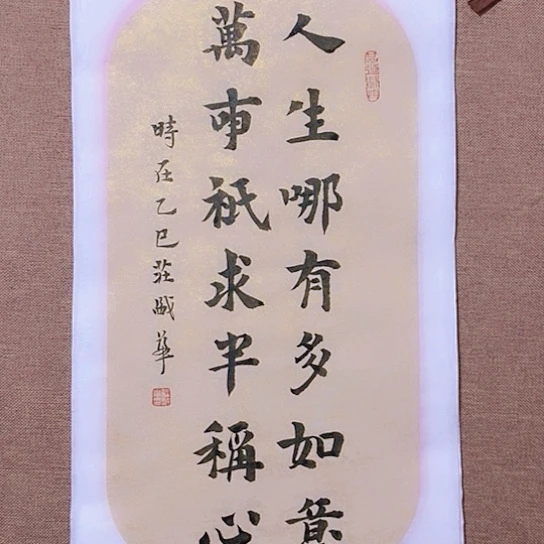 人生哪有多如意
萬事祇求半稱心
時在乙巳莊盛華